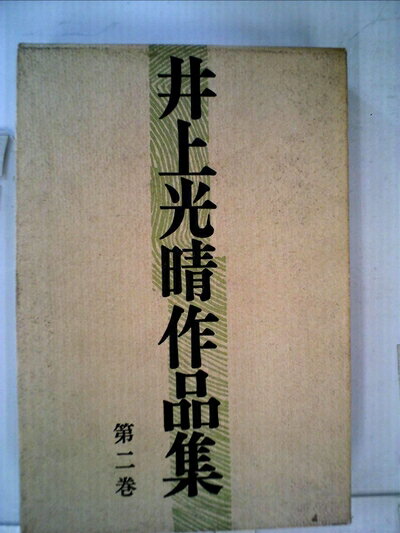 井上光晴作品集
第二巻